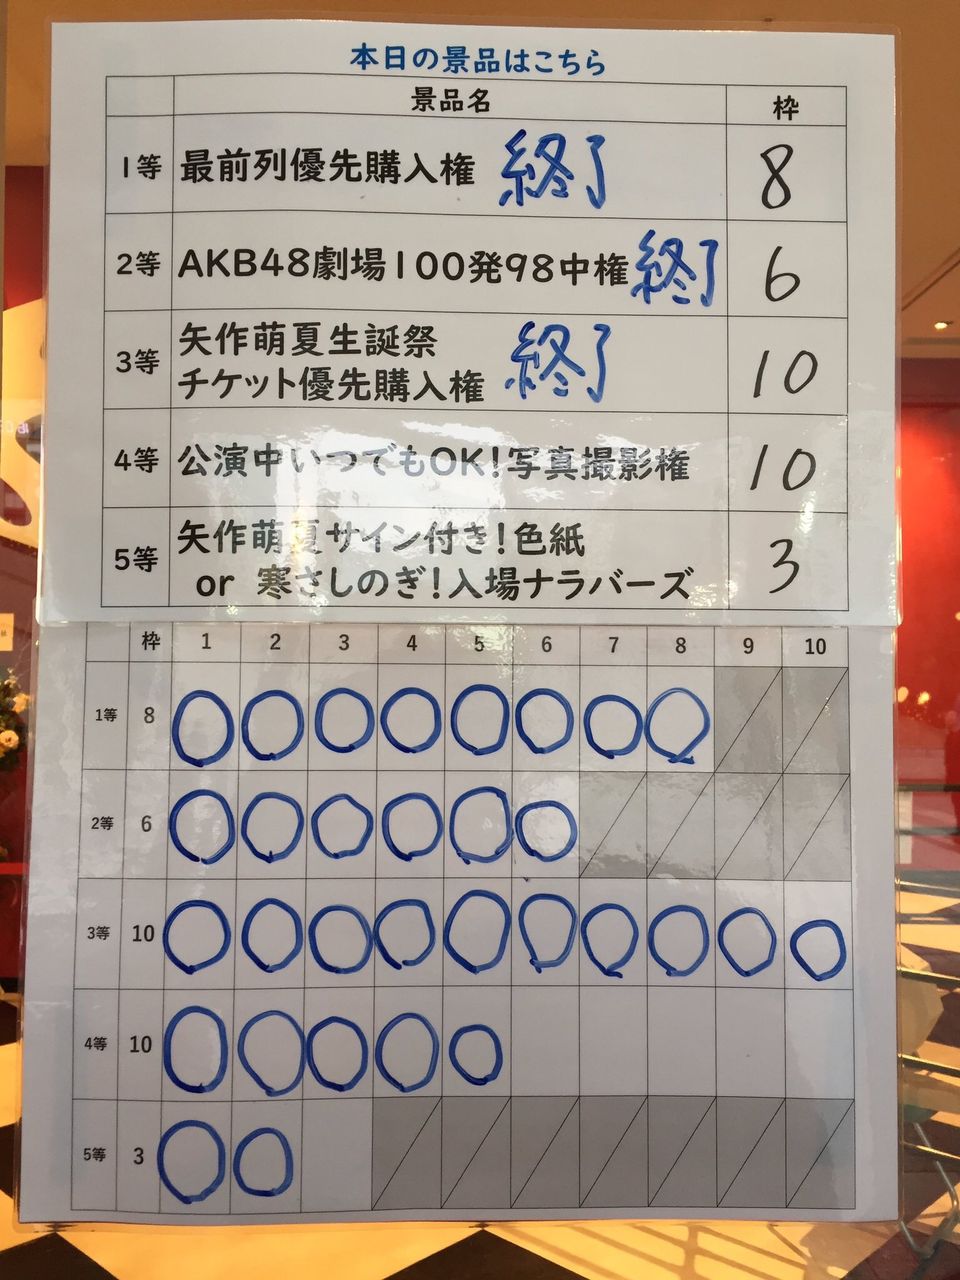 本日の景品はこちら
景品名 枠
1等 最前列優先購入権 終了 8
2等 AKB48劇場100発98中権 終了 6
3等 矢作萌夏生誕祭
チケット優先購入権 終了 10
4等 公演中いつでもOK!写真撮影権 10
5等 矢作萌夏サイン付き!色紙
or 寒さしのぎ!入場ナラバーズ 3
枠 1 2 3 4 5 6 7 8 9 10
1等 8
2等 6
3等 10
4等 10
5等 3